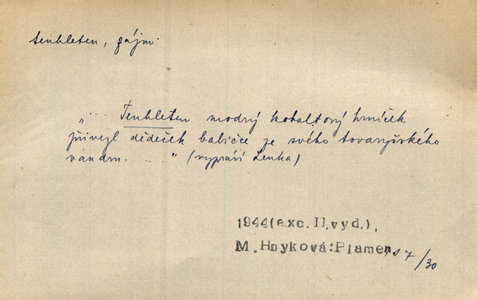 tenhleten, zájm.
„ ... Tenhleten modrý kobaltový hrníček
přivezl dědeček babičce ze svého tovaryšského
vandru. ... " (vypráví Lenka)
1944(exc.II.vyd.),
M. Hnyková:Plamen 107/30